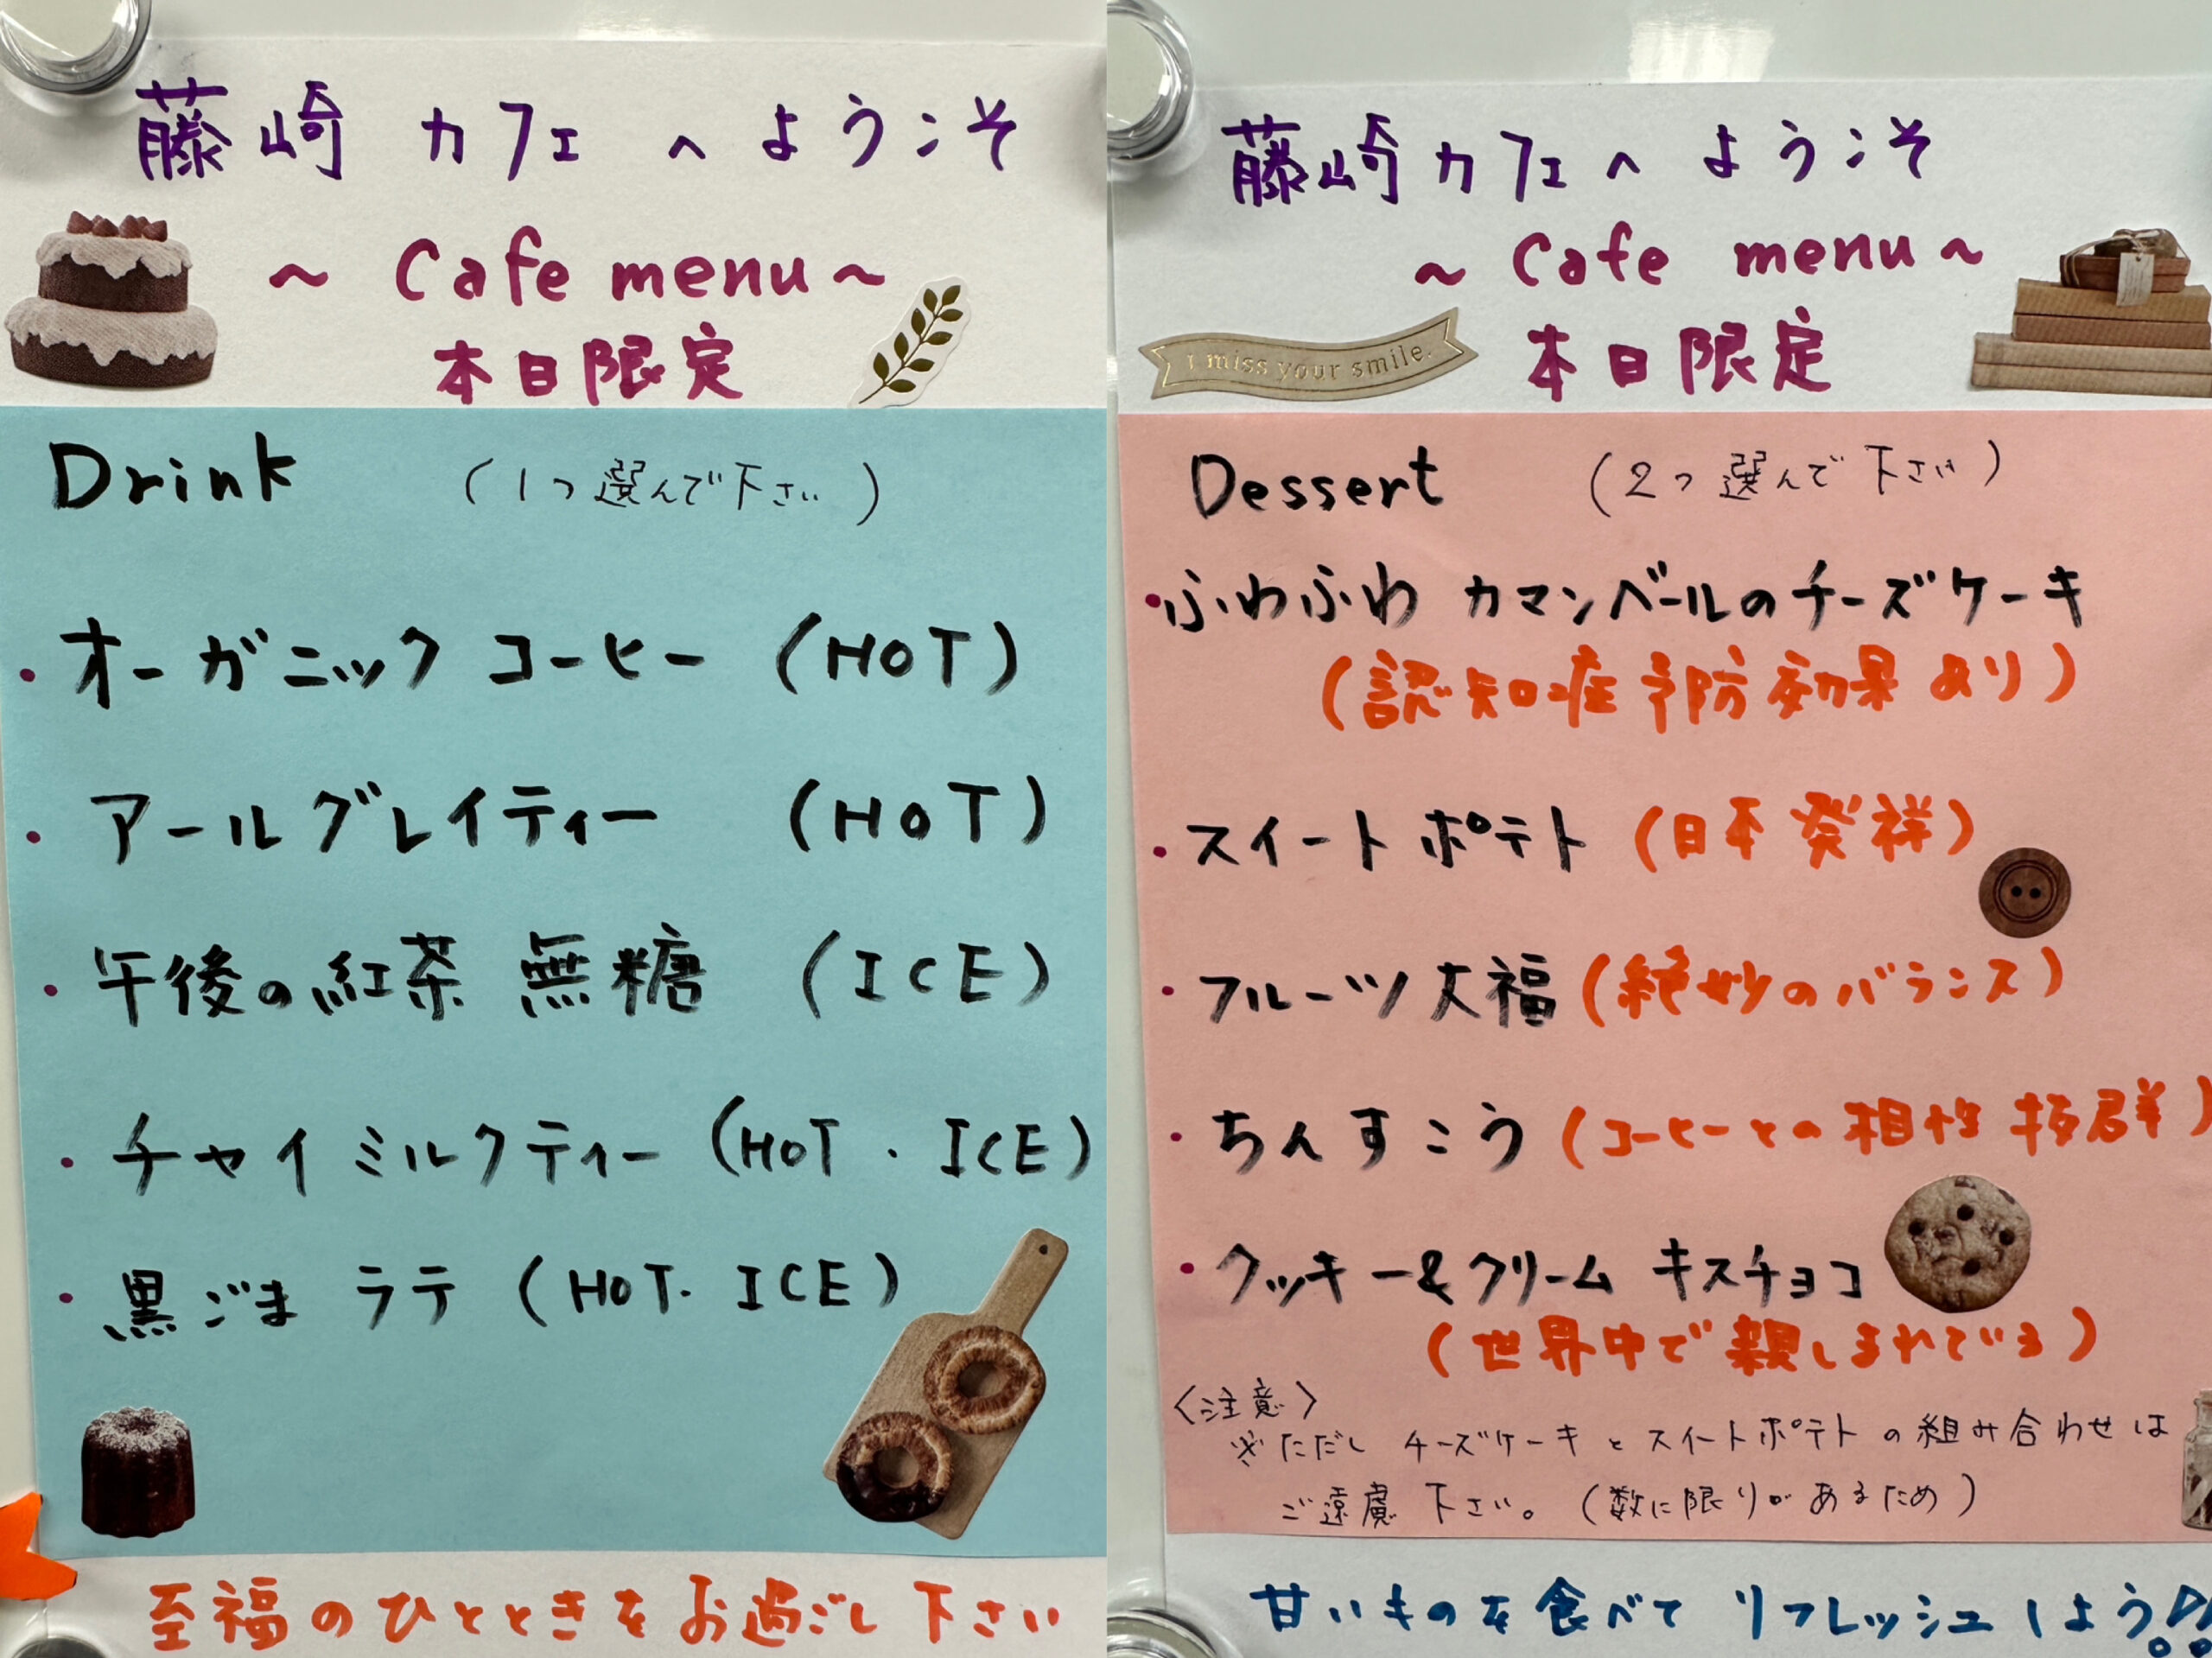 藤崎 カフェ へ ようこそ
～ Cafe menu ～
本日限定
Drink （1つ選んで下さい）
・オーガニック コーヒー （HOT）
・アールグレイティー （HOT）
・午後の紅茶 無糖 （ICE）
・チャイ ミルクティー （HOT・ICE）
・黒ごま ラテ （HOT・ICE）
至福のひとときをお過ごし下さい
藤崎カフェへ ようこそ
～ Cafe menu ～
I miss your smile.
本日限定
Dessert （2つ選んで下さい）
・ふわふわ カマンベールのチーズケーキ
（認知症予防効果あり）
・スイートポテト （日本発祥）
・フルーツ大福 （絶妙のバランス）
・ちんすこう （コーヒーとの相性抜群）
・クッキー&クリーム キスチョコ
（世界中で親しまれている）
〈注意〉
※ただし チーズケーキとスイートポテトの組み合わせは
ご遠慮下さい。（数に限りがあるため）
甘いものを食べて リフレッシュしよう!!